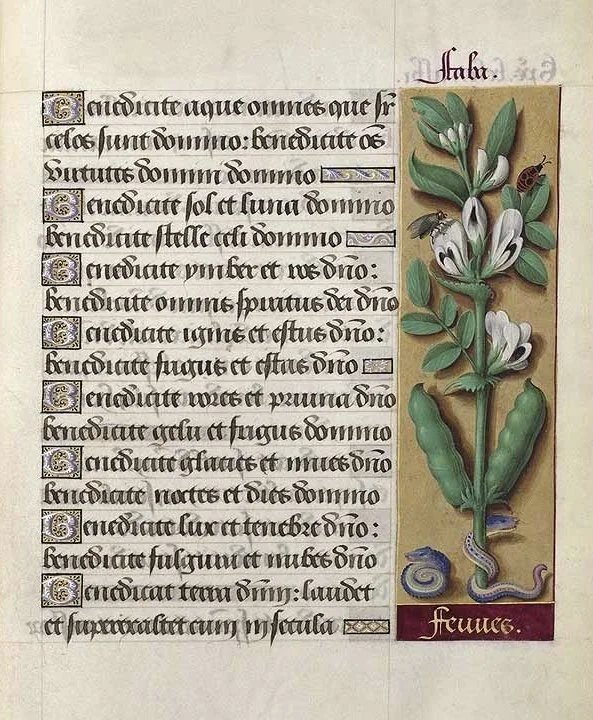 Faba.
Benedicite aque omnes que sr̃
celos sunt domino: benedicite oẽs
virtutes domini domino
Benedicite sol et luna domino
benedicite stelle celi domino
Benedicite ymber et ros dño:
benedicite omnis spiritus dei dño
Benedicite ignis et estus dño:
benedicite frigus et estas dño
Benedicite rores et pruina dño
benedicite gelu et frigus domino
Benedicite glacies et nives dño
benedicite noctes et dies domino
Benedicite lux et tenebre dño:
benedicite fulgura et nubes dño
Benedicat terra dñm: laudet
et superexaltet eum in secula
Feuves.